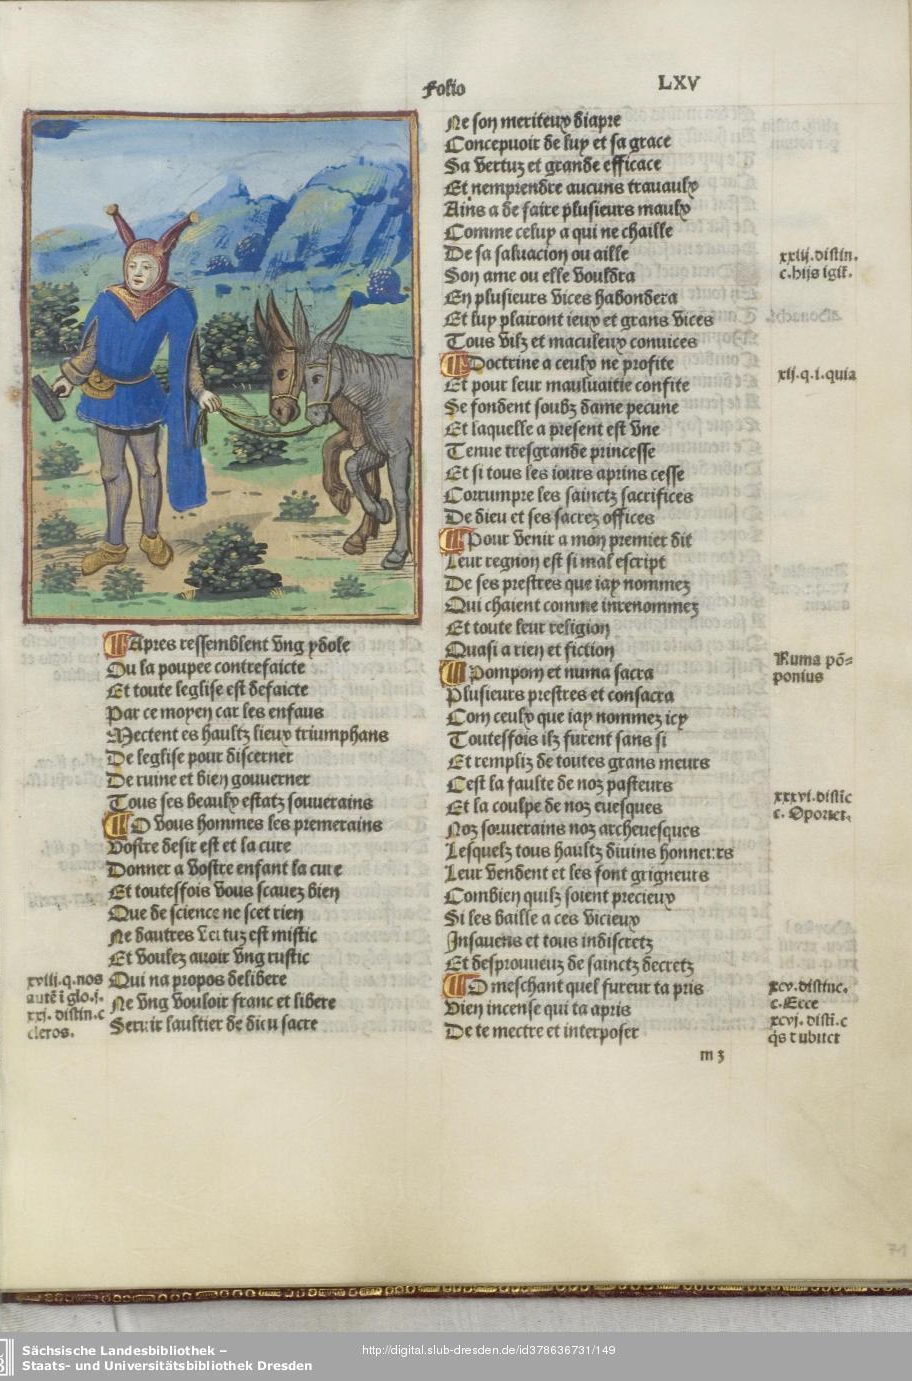 Folio LXV
Apres ressemblent vng ydole
Ou la poupee contrefaicte
Et toute leglise est defaicte
Par ce moyen car les enfans
Mectent es haultz lieux triumphans
De leglise pour discerner
De ruine et bien gouuerner
Tous ses beaulx estatz souuerains
O vous hommes les premerains
Vostre desir est et la cure
Donner a vostre enfant la cure
Et toutesfois vous scauez bien
Que de science ne scet rien
Ne dautres vertuz est mistic
Et voulez auoir vng rustic
Qui na propos delibere
Ne vng vouloir franc et libere
Seruir laultier de dieu sacre
xviii.q.nos
autē ī glo.f.
xxj. distin.c
cleros.
Ne son meriteux diapre
Conceuoir de luy et sa grace
Sa vertuz et grande efficace
Et nemprendre aucuns trauaulx
Ains a de faire plusieurs maulx
Comme celuy a qui ne chaille
De sa saluacion ou aille
Son ame ou elle vouldra
En plusieurs vices habondera
Et luy plairont ieux et grans vices
Tous vilz et maculeux conuices
Doctrine a ceulx ne profite
Et pour leur mauluaitie confite
Se fondent soubz dame pecune
Et laquelle a present est vne
Tenue tresgrande princesse
Et si tous les iours aprins cesse
Corrumpre les sainctz sacrifices
De dieu et ses sacrez offices
Pour venir a mon premier dit
Leur regnion est si mal escript
De ses prestres que iay nommez
Qui chaient comme inrenommez
Et toute leur religion
Quasi a rien et fiction
Pompon et numa sacra
Plusieurs prestres et consacra
Com ceulx que iay nommez icy
Toutesfois ilz furent sans si
Et rempliz de toutes grans meurs
Cest la faulte de noz pasteurs
Et la coulpe de noz euesques
Noz souuerains noz archeuesques
Lesquelz tous haultz diuins honneurs
Leur vendent et les font grigneurs
Combien quilz soient precieux
Si les baille a ces vicieux
Insauens et tous indiscretz
Et desprouueuz de sainctz decretz
O meschant quel fureur ta pris
Vien incense qui ta apris
De te mectre et interposer
m 3
xxiij.distin.
c.hijs igit.
xij.q.i.quia
Numa pō=
ponius
xxxvi.distīc
c. Oportet.
xcv.distinc.
c.Ecce
xcvj. distī.c
q̄s t ubitet
71
Sächsische Landesbibliothek –
Staats- und Universitätsbibliothek Dresden
http://digital.slub-dresden.de/id378636731/149